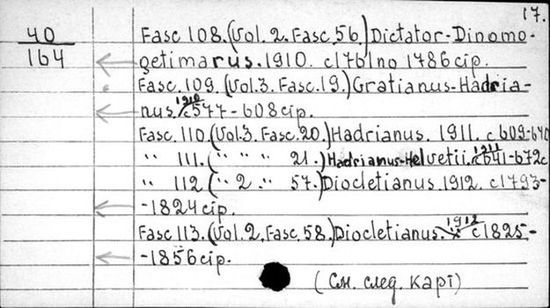 17.
40
164
Fasc 108. (Vol. 2. Fasc. 56.) Dictator-Dinomo-
getimarus. 1910. c1761no 1786cip.
Fasc. 109. (Vol. 3. Fasc. 19.) Gratianus-Hadria-
nus. 1910 c577-608cip.
Fasc. 110. (Vol. 3. Fasc. 20.) Hadrianus. 1911. c609-640
" 111. (" " " 21.) Hadrianus-Helvetii. 1911 c641-672c
" 112 (" 2 " 57.) Diocletianus. 1912. c1793-
-1824cip.
Fasc. 113. (Vol. 2, Fasc. 58.) Diocletianus. 1912 c1825-
-1856cip.
(См. след. карт)